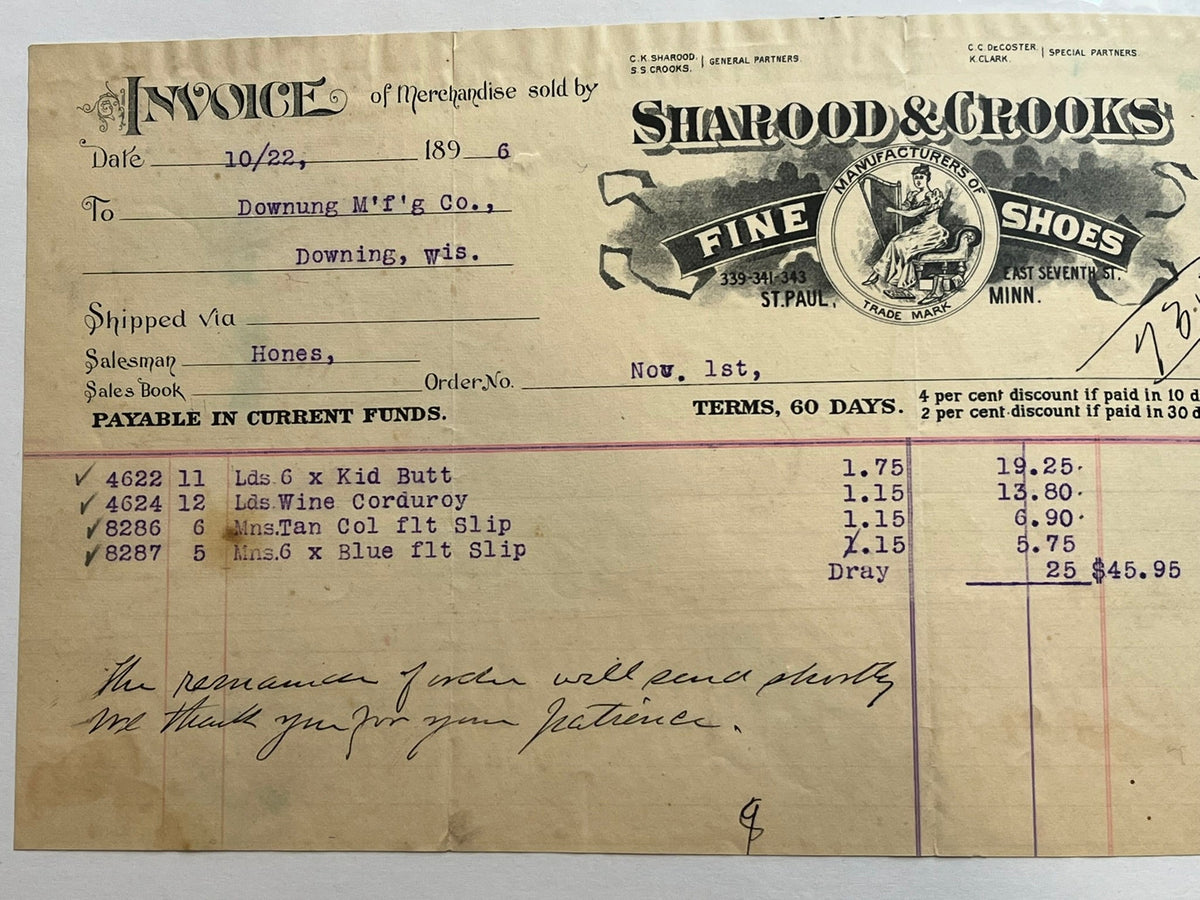 C.K. SHAROOD.
S.S CROOKS. GENERAL PARTNERS.
C.C. DECOSTER.
K. CLARK. SPECIAL PARTNERS.
INVOICE of Merchandise sold by
SHAROOD & CROOKS
MANUFACTURERS OF
FINE SHOES
TRADE MARK
339-341-343 EAST SEVENTH ST.
ST. PAUL, MINN.
Date 10/22, 1896
To Downung M'f'g Co.,
Downing, Wis.
Shipped via
Salesman Hones,
Sales Book Order No. Nov. 1st,
PAYABLE IN CURRENT FUNDS. TERMS, 60 DAYS.
4 per cent discount if paid in 10 d
2 per cent discount if paid in 30 d
4622 11 Lds. 6 x Kid Butt 1.75 19.25
4624 12 Lds. Wine Corduroy 1.15 13.80
8286 6 Mns. Tan Col flt Slip 1.15 6.90
8287 5 Mns. 6 x Blue flt Slip 1.15 5.75
Dray 25 $45.95
The remainder of order will send shortly
We thank you for your patience.